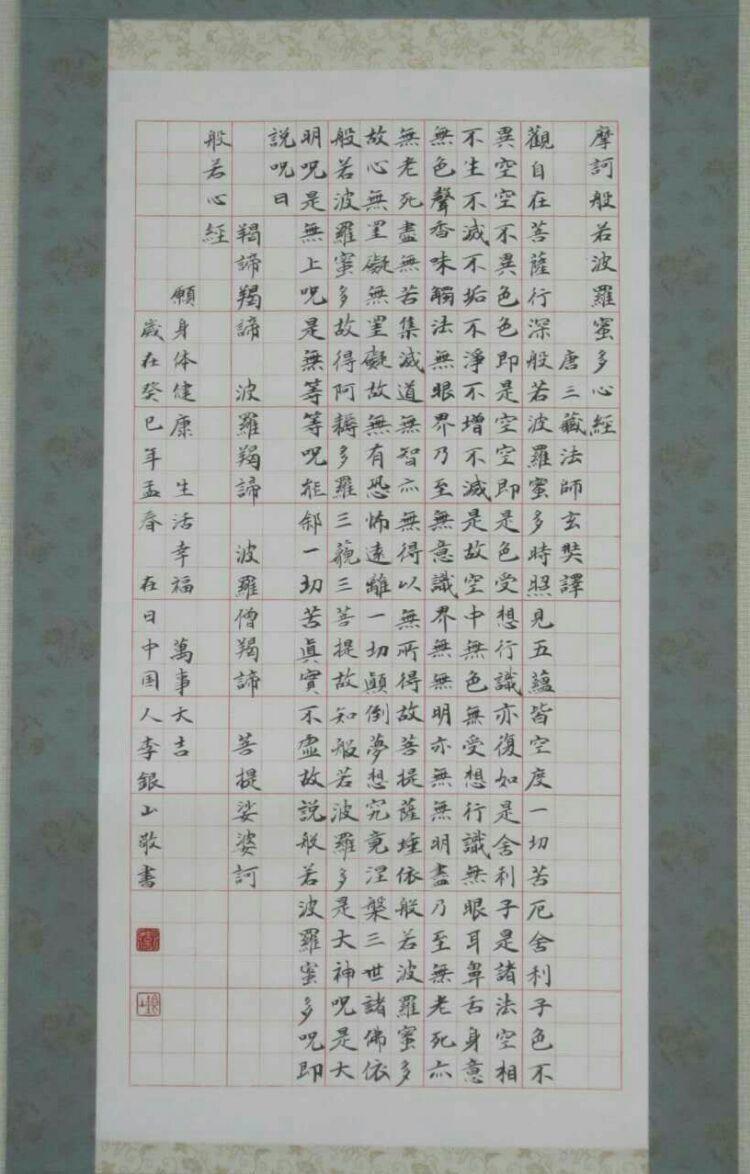 摩訶般若波羅蜜多心經
唐三藏法師玄奘譯
觀自在菩薩行深般若波羅蜜多時照見五蘊皆空度一切苦厄舍利子色不
異空空不異色色即是空空即是色受想行識亦復如是舍利子是諸法空相
不生不滅不垢不淨不增不減是故空中無色無受想行識無眼耳鼻舌身意
無色聲香味觸法無眼界乃至無意識界無無明亦無無明盡乃至無老死亦
無老死盡無苦集滅道無智亦無得以無所得故菩提薩埵依般若波羅蜜多
故心無罣礙無罣礙故無有恐怖遠離一切顛倒夢想究竟涅槃三世諸佛依
般若波羅蜜多故得阿耨多羅三藐三菩提故知般若波羅多是大神呪是大
明呪是無上呪是無等等呪能除一切苦真實不虛故說般若波羅蜜多呪即
說呪曰
羯諦羯諦 波羅羯諦 波羅僧羯諦 菩提娑婆訶
般若心經
願身体健康 生活幸福 萬事大吉
歲在癸巳年孟春 在日中国人李銀山敬書